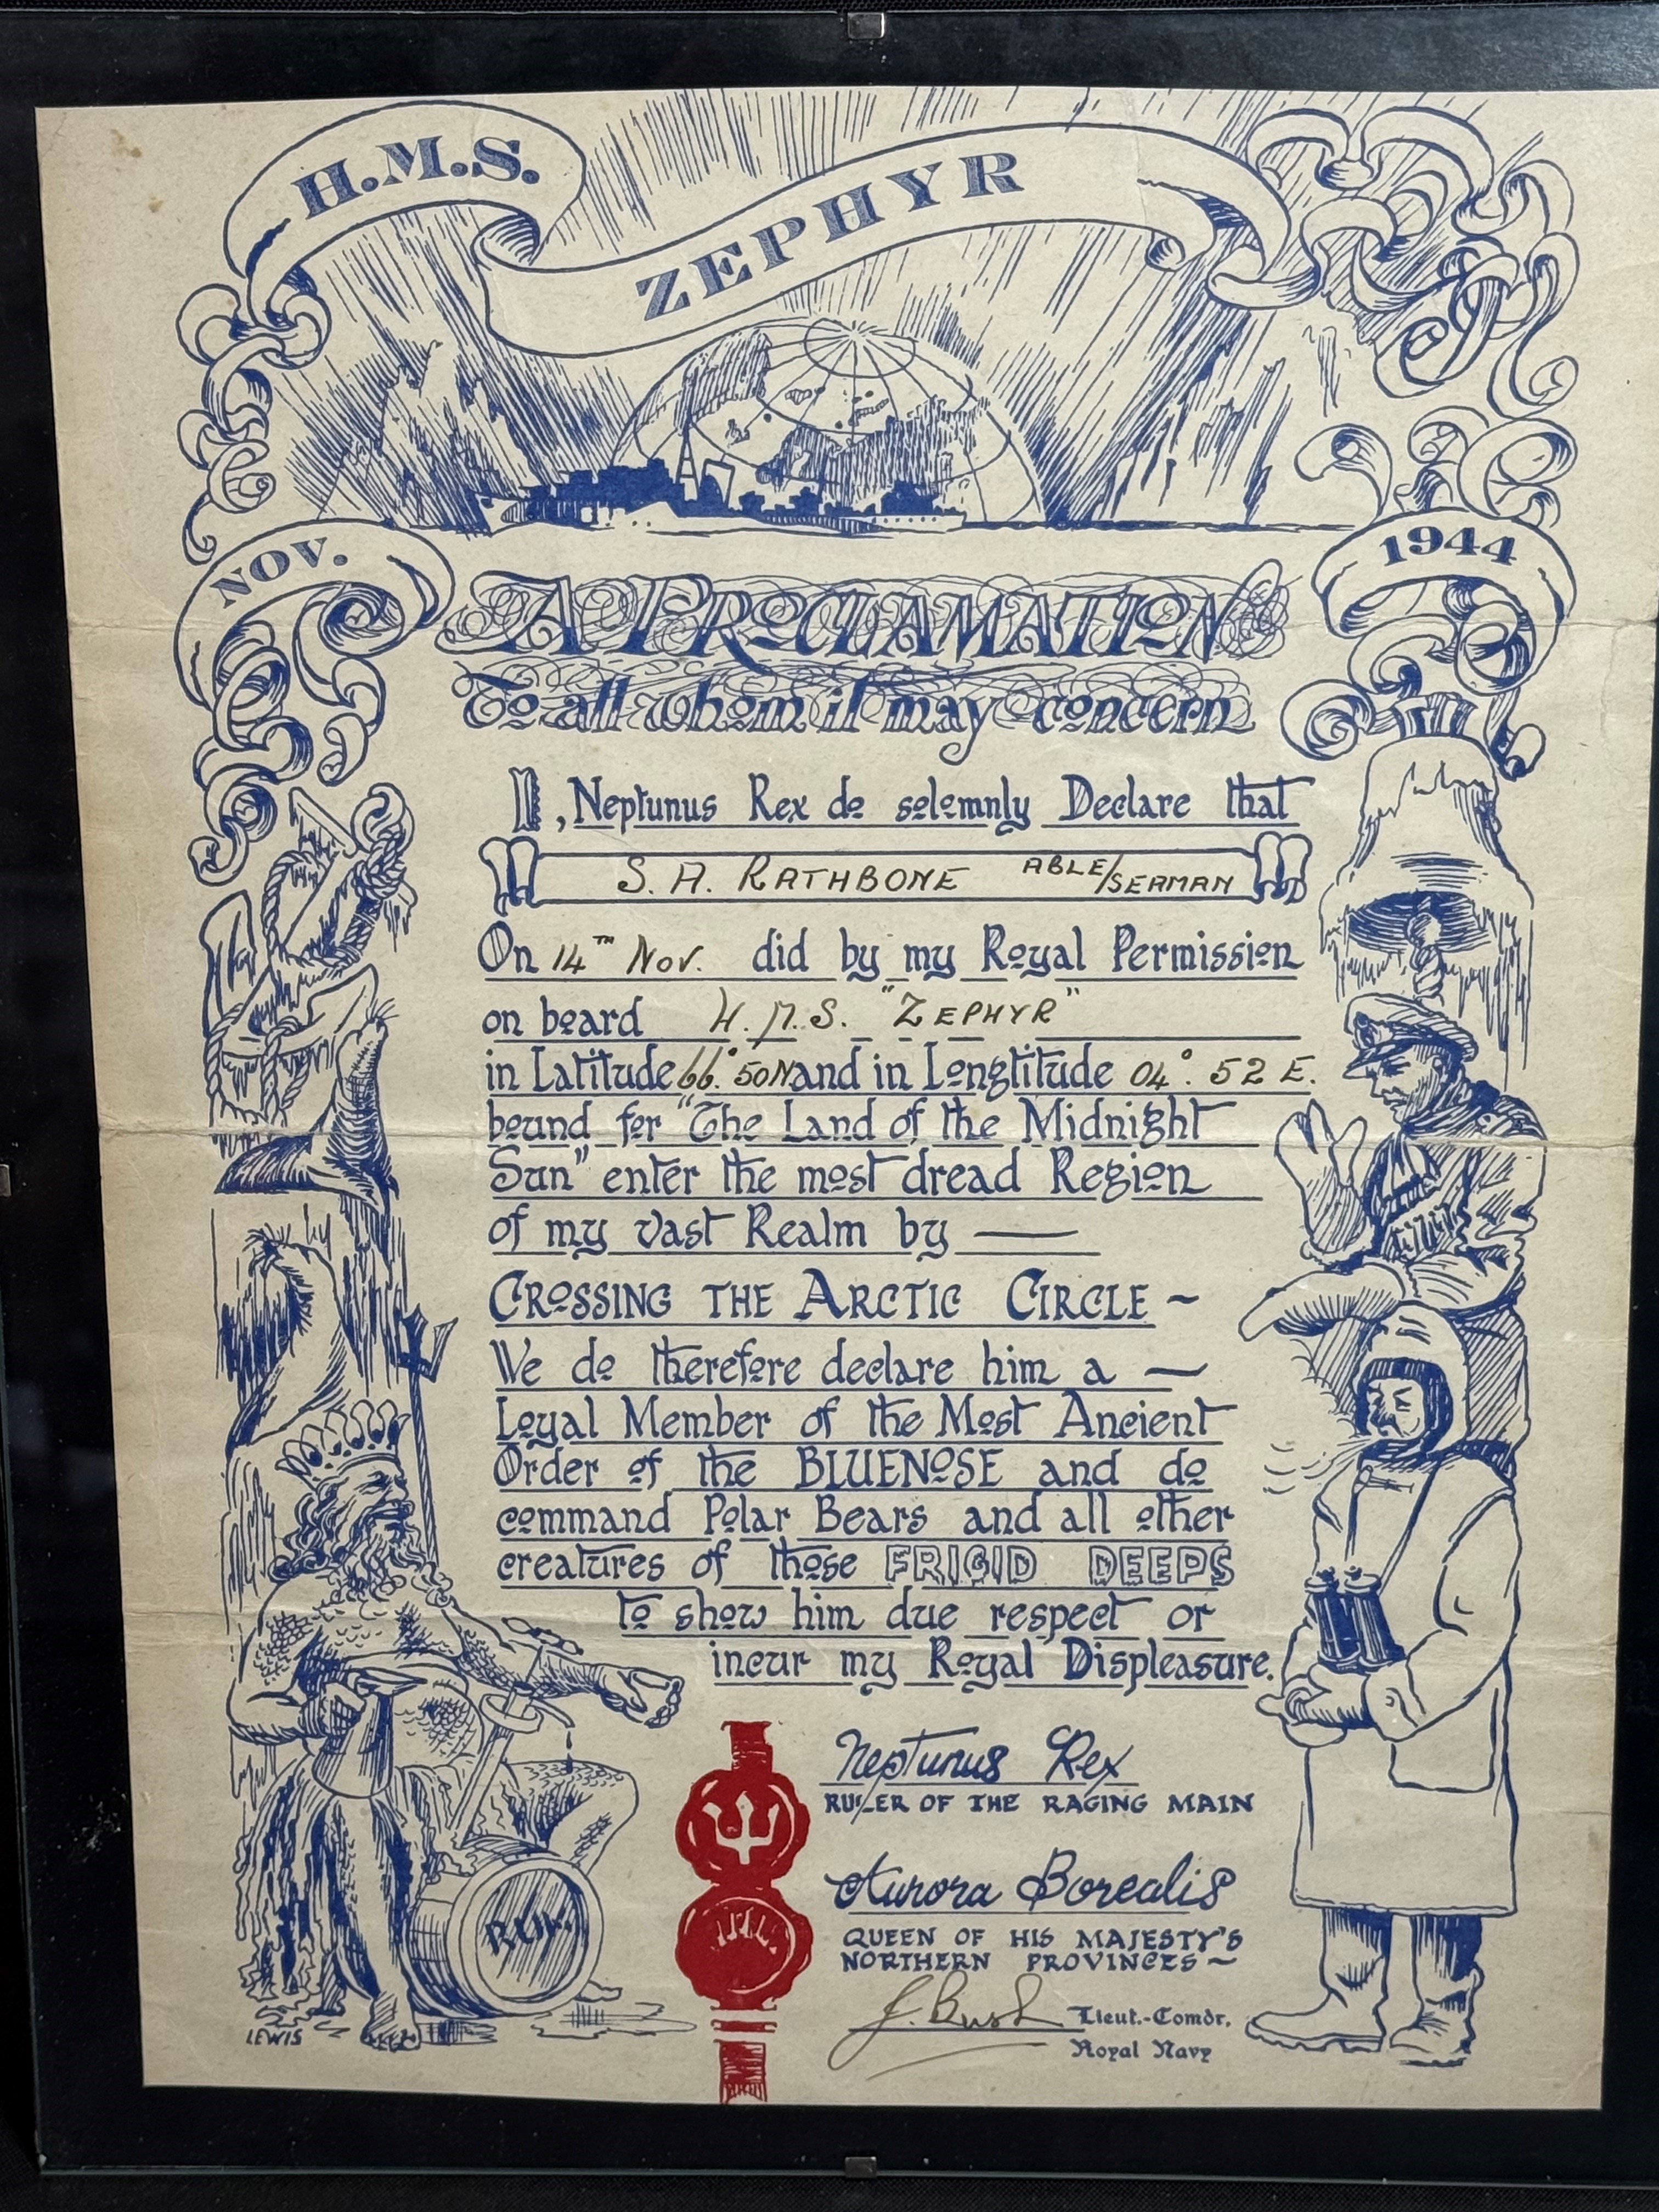 H.M.S.
ZEPHYR
NOV.
1944
A PROCLAMATION
To all whom it may concern
I, Neptunus Rex do solemnly Declare that
S. A. RATHBONE ABLE/SEAMAN
On 14TH NOV. did by my Royal Permission
on board H.M.S. "ZEPHYR"
in Latitude 66°. 50N and in Longtitude 04°. 52 E.
bound for "The Land of the Midnight
Sun" enter the most dread Region
of my vast Realm by —
CROSSING THE ARCTIC CIRCLE ~
We do therefore declare him a —
Loyal Member of the Most Ancient
Order of the BLUENOSE and do
command Polar Bears and all other
creatures of those FRIGID DEEPS
to show him due respect or
incur my Royal Displeasure.
Neptunus Rex
RULER OF THE RAGING MAIN
Aurora Borealis
QUEEN OF HIS MAJESTY'S
NORTHERN PROVINCES ~
J. Bush Lieut.-Comdr.
Royal Navy
RUM
LEWIS